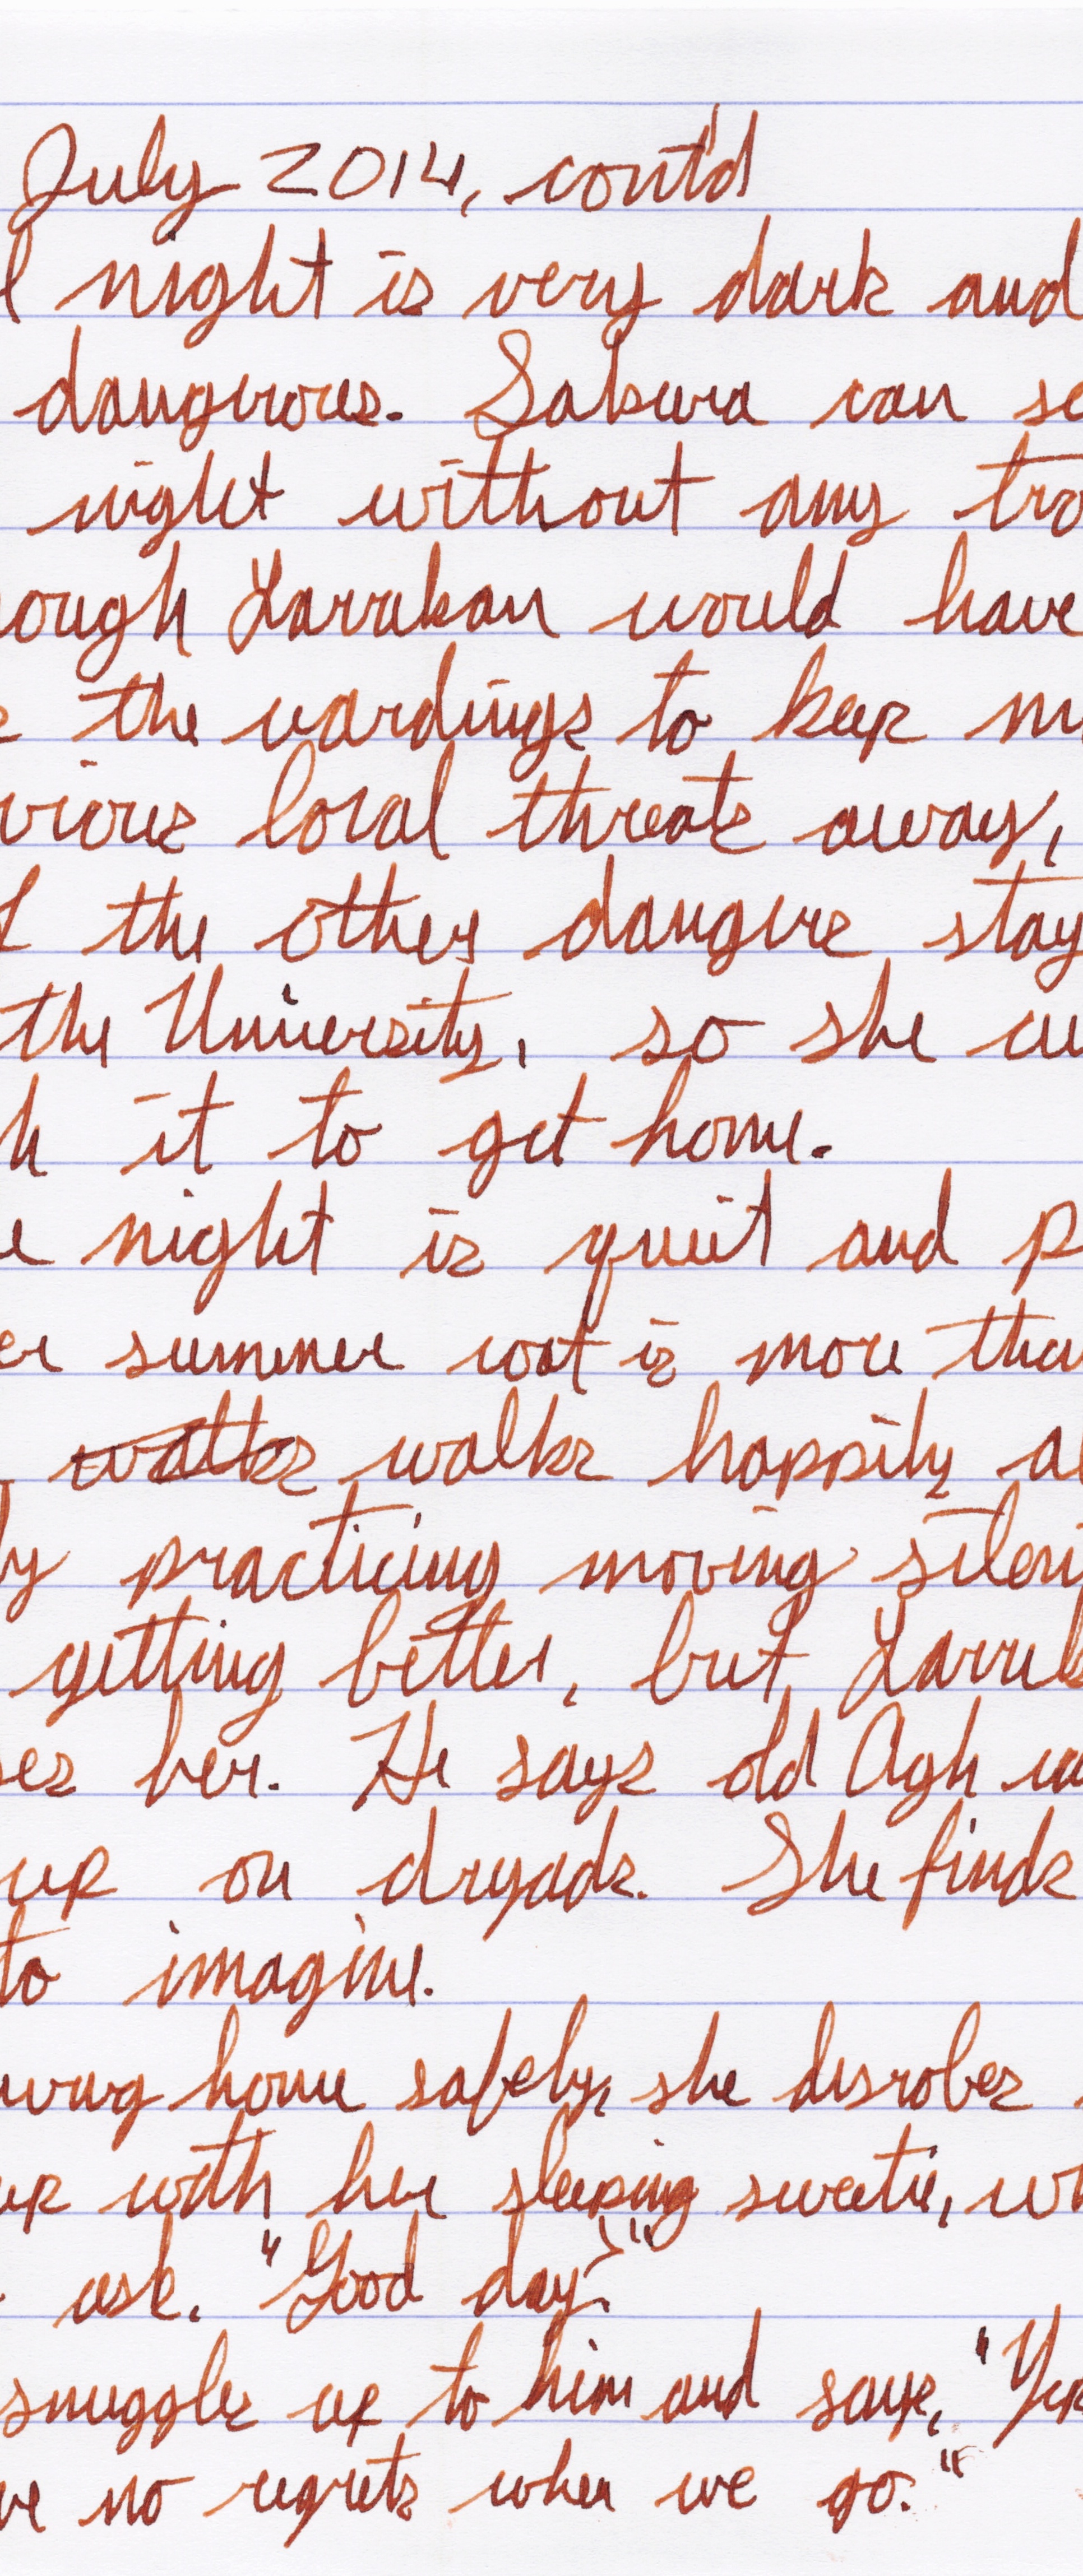 July 2014, cont'd
l night is very dark and
dangerous. Sakura can se
night without any tro
ough Larrikan would have
e the wardings to keep m
vious local threats away,
d the other dangers stay
the University, so she
k it to get home.
e night is quiet and p
er summer coat is more tha
walks walks happily al
ly practicing moving silen
getting better, but Larrik
ses her. He says old Ogh ca
up on dryads. She finds
to imagine.
iving home safely, she disrobes
up with her sleeping sweetie, wh
ask. "Good day?"
snuggles up to him and says, "Yep
ve no regrets when we go."